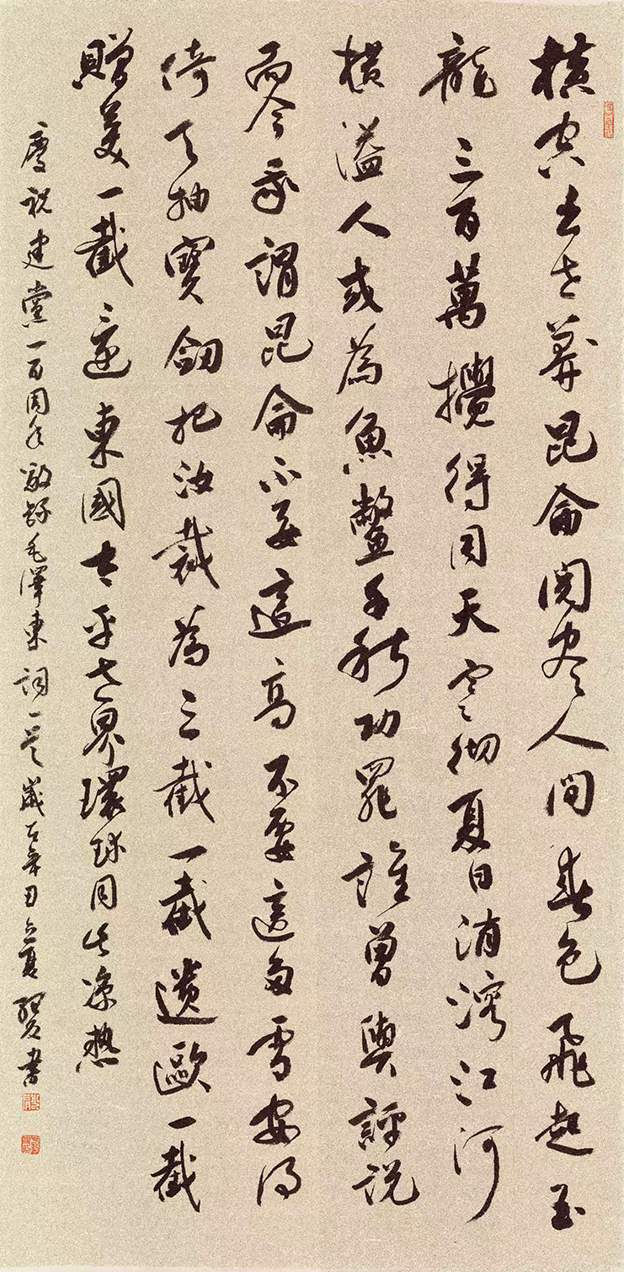 横空出世莽昆侖閱盡人間春色飛起玉
龍三百萬攪得周天寒徹夏日消溶江河
横溢人或為魚鱉千秋功罪誰曾與評説
而今我謂昆侖不要這高不要這多雪安得
倚天抽寶劍把汝裁為三截一截遺歐一截
贈美一截還東國太平世界環球同此涼熱
慶祝建黨一百周年敬毛澤東詞一首歲在辛丑夏賢書